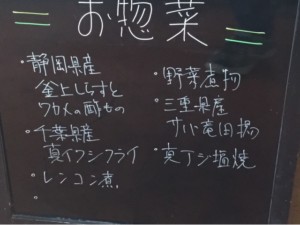 お惣菜
・静岡県産
釜上しらすと
ワカメの酢もの
・千葉県産
真イワシフライ
・レンコン煮
・野菜煮物
・三重県産
サバ竜田揚
・真アジ塩焼